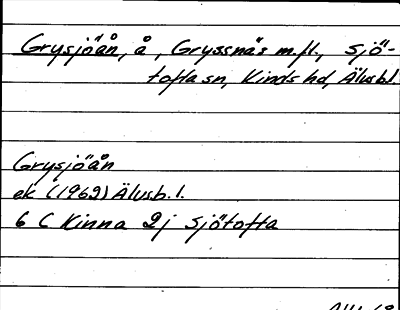 Grysjöån, å, Gryssnäs m.fl., Sjö-
tofta sn, Kinds hd, Älvsb.l.
Grysjöån
ek (1962) Älvsb.l.
6 C Kinna 2j Sjötofta